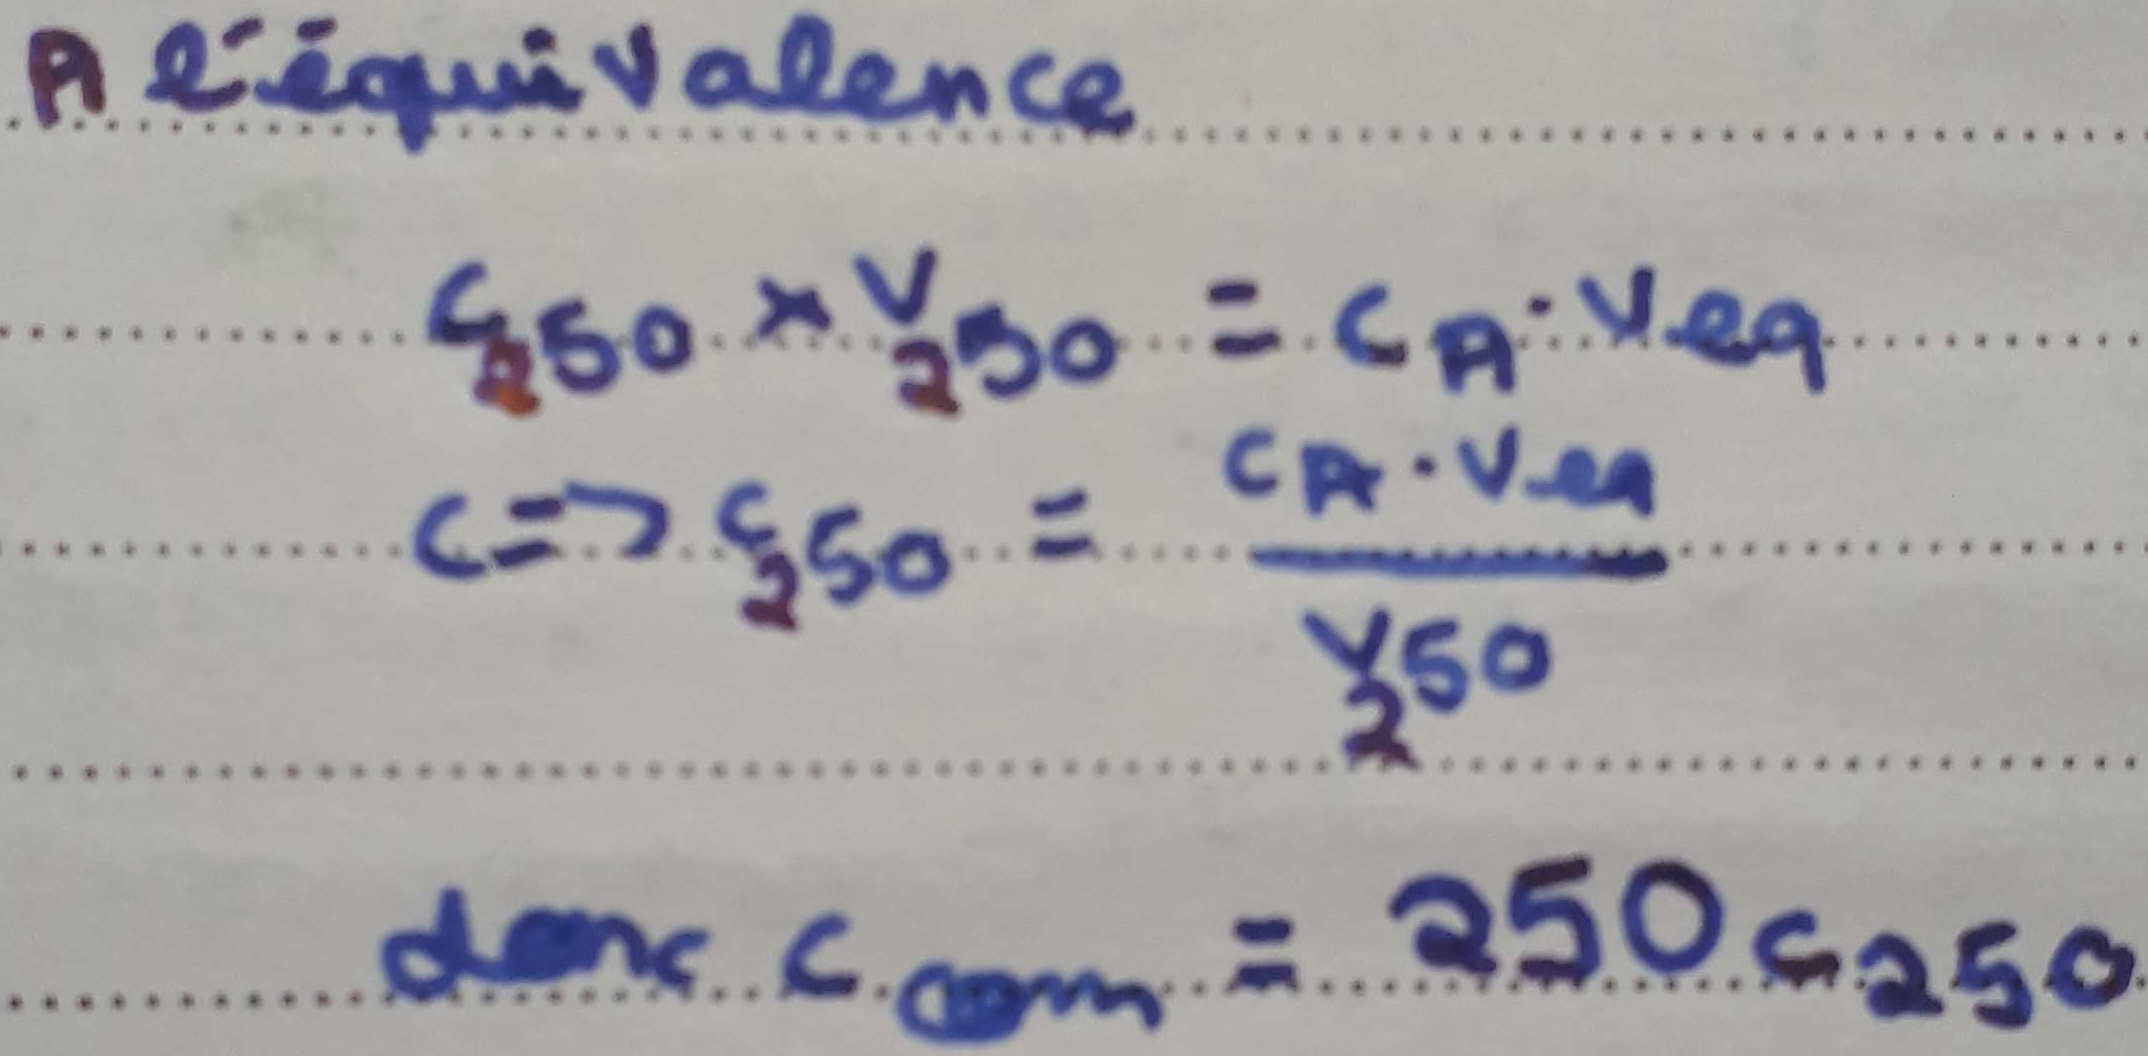 A l'équivalence
C250 × V250 = CA · Veq
<=> C250 = CA · Veq / V250
donc Ccom = 250 C250